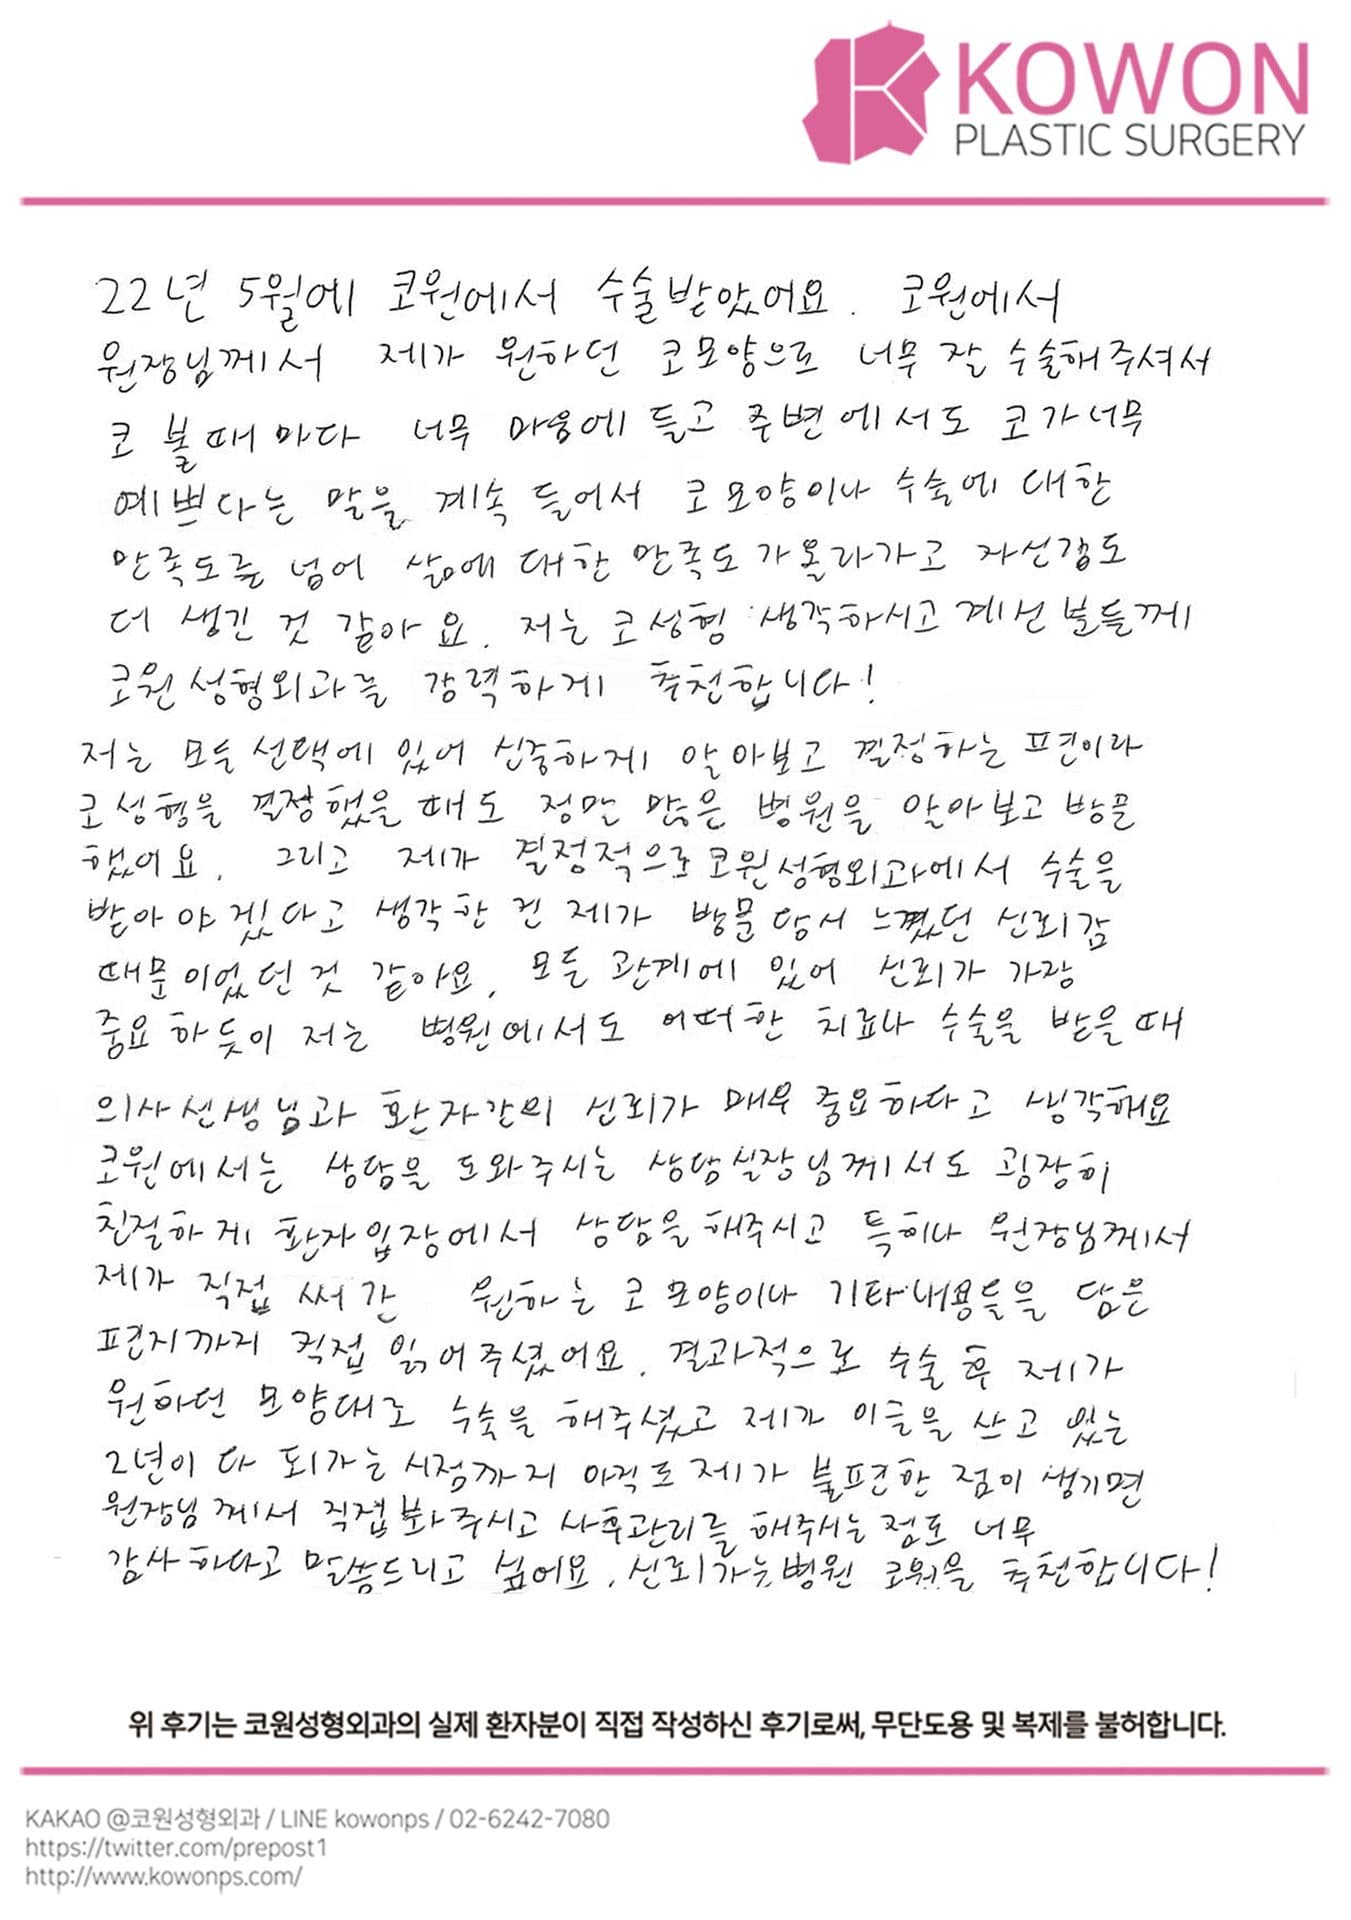 KOWON
PLASTIC SURGERY
22년 5월에 코원에서 수술받았어요. 코원에서
원장님께서 제가 원하던 코모양으로 너무 잘 수술해주셔서
코 볼때마다 너무 마음에 들고 주변에서도 코가너무
예쁘다는 말을 계속 들어서 코모양이나 수술에 대한
만족도를 넘어 삶에 대한 만족도가올라가고 자신감도
더 생긴 것 같아요. 저는 코성형 생각하시고 계신 분들께
코원성형외과를 강력하게 추천합니다!
저는 모든선택에 있어 신중하게 알아보고 결정하는 편이라
코성형을 결정했을때도 정말 많은 병원을 알아보고 방문
했어요. 그리고 제가 결정적으로코원성형외과에서 수술을
받아야겠다고 생각한 건 제가 방문당시 느꼈던 신뢰감
때문이었던것 같아요. 모든 관계에 있어 신뢰가 가장
중요하듯이 저는 병원에서도 어떠한 치료나 수술을 받을때
의사선생님과 환자간의 신뢰가 매우 중요하다고 생각해요
코원에서는 상담을 도와주시는 상담실장님께서도 굉장히
친절하게 환자입장에서 상담을해주시고 특히나 원장님께서
제가 직접 써간 원하는 코모양이나 기타내용들을 담은
편지까지 직접 읽어주셨어요. 결과적으로 수술 후 제가
원하던 모양대로 수술을 해주셨고 제가 이글을 쓰고 있는
2년이 다 되가는 시점까지 아직도 제가 불편한 점이 생기면
원장님께서 직접봐주시고 사후관리를 해주시는점도 너무
감사하다고 말씀드리고 싶어요. 신뢰가는병원 코원을 추천합니다!
위 후기는 코원성형외과의 실제 환자분이 직접 작성하신 후기로써, 무단도용 및 복제를 불허합니다.
KAKAO @코원성형외과 / LINE kowonps / 02-6242-7080
https://twitter.com/prepost1
http://www.kowonps.com/